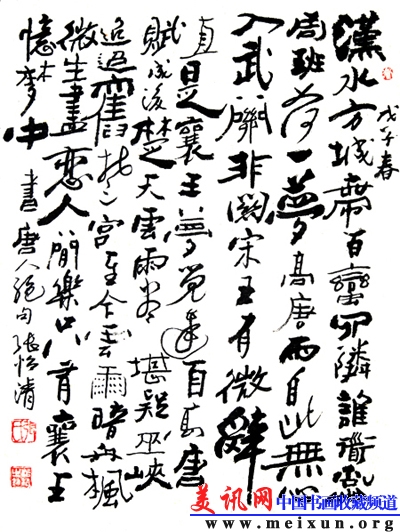 漢水方城帶百蠻四隣誰道亂
周班如何一夢高唐雨自此無心
入武關非關宋玉有微辭
直是襄王夢覺遲一自高唐
賦成後楚天雲雨尽堪疑巫峡
迢迢舊楚宮至今雲雨暗丹楓
微生盡戀人間樂只有襄王
憶夢中 書唐人絕句
戊子春
美讯网 中国书画收藏频道
www.meixun.org